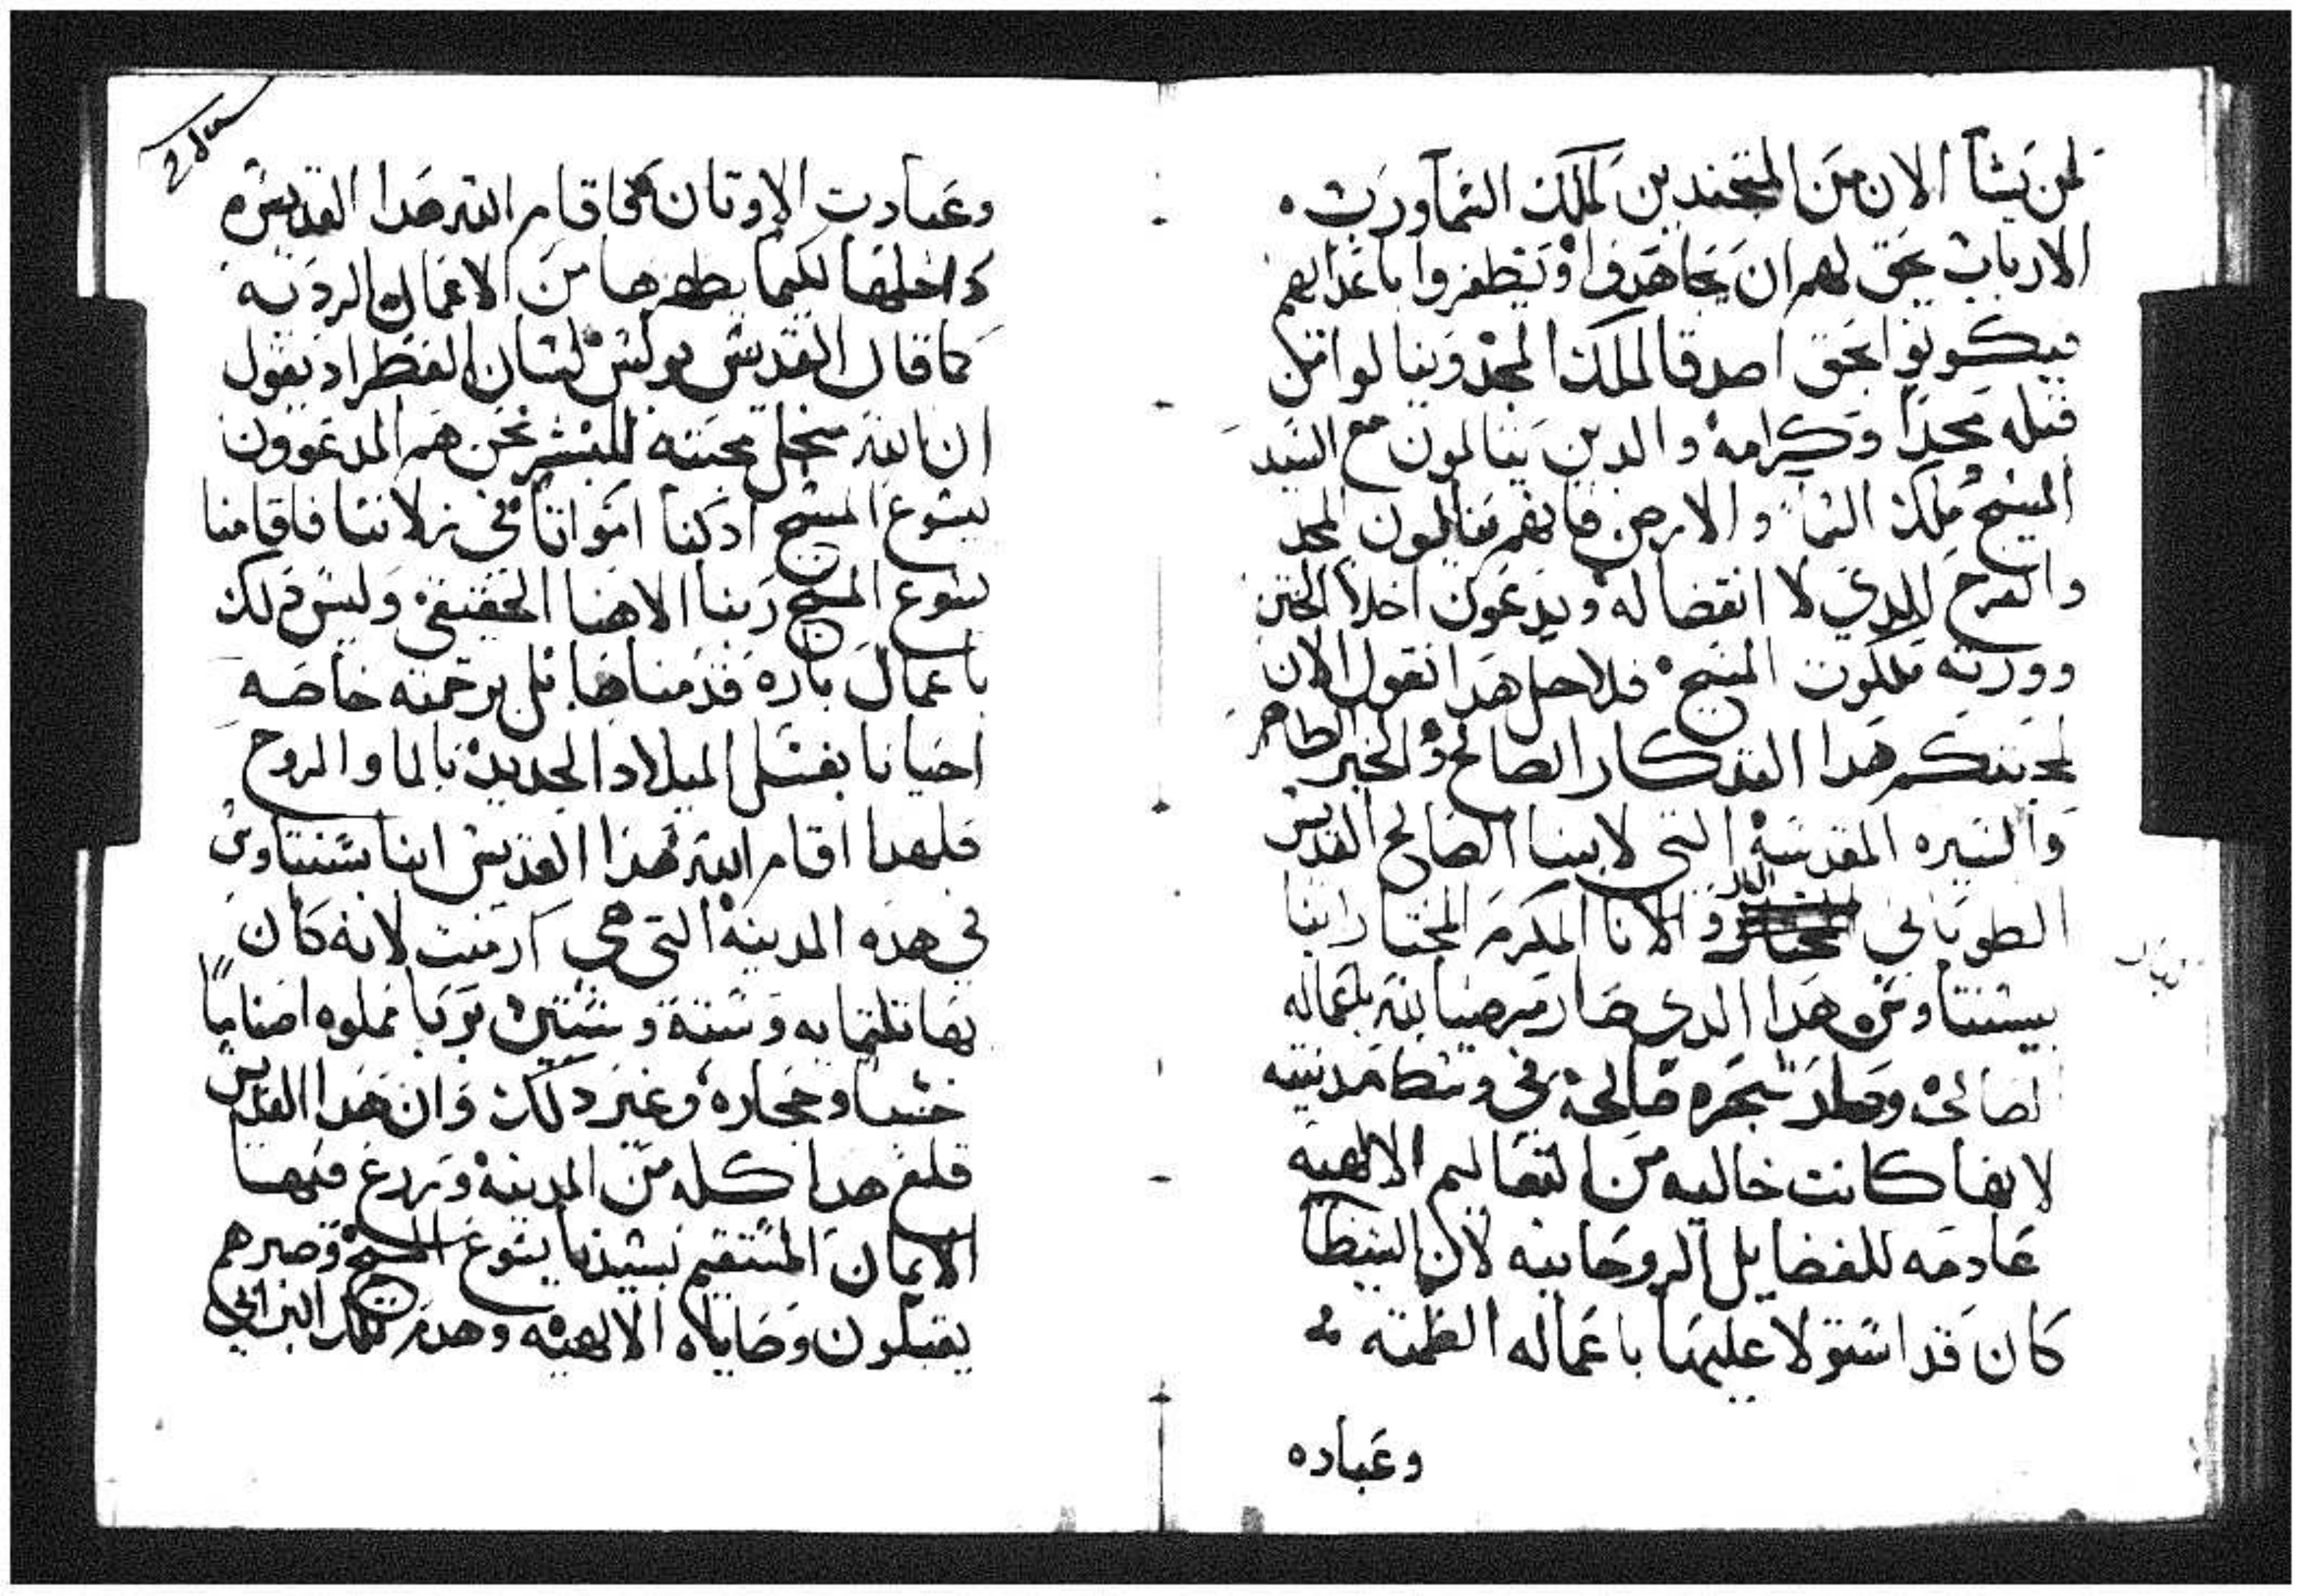 لمن يشا الان من المتجندين لملك السما ورب
الارباب يحق لهم ان يجاهدوا ويظفروا باعدايهم
فيكونوا بحق اصدقا لملك المجد وينالوا من
قبله مجدا وكرامه والدين يتالمون مع السيد
المسيح ملك السما والارض فانهم ينالون المجد
والفرح الدي لا انقضا له ويدعون اخلا الختن
وورثه ملكوت المسيح فلاجل هدا نقول الان
لمحبتكم هدا التدكار الصالح والخبر الطاهر
والسيره المقدسة التي لابينا الصالح القديس
الطوباني البار والانا المكرم المختار ابينا
بيسنتاوس هدا الدي صار مرضيا لله باعماله
الصالحة وصار شجره صالحة في وسط مدينته
لانها كانت خاليه من التعاليم الالاهيه
عادمه للفضايل الروحانيه لان الشيطان
كان قد استولا عليها باعماله الطمته
وعباده
وعبادت الاوتان فاقام الله هدا القديس
داخلها لكيما يطهرها من الاعمال الرديه
كما قال القديس بولس لسان العطر اد يقول
ان الله من اجل محبته للبشر نحن هم المدعوون
بيسوع المسيح اد كنا امواتا في زلاتنا فاقامنا
يسوع المسيح ربنا الاهنا الحقيقي وليس دلك
باعمال باره قدمناها بل برحمته خاصه
احيانا بغسل الميلاد الجديد بالما والروح
فلهدا اقام الله هدا القديس ابنا بسنتاوس
في هده المدينة التي هي ارمنت لانه كان
بها تلتمايه وستة وستين بربا مملوه اصناما
خشبا وحجاره وغير دلك وان هدا القديس
قلع هدا كله من المدينة وزرع فيها
الايمان المستقيم بسيدنا يسوع المسيح وصيرهم
يقبلون وصاياه الالاهيه وهدم تلك البرابي